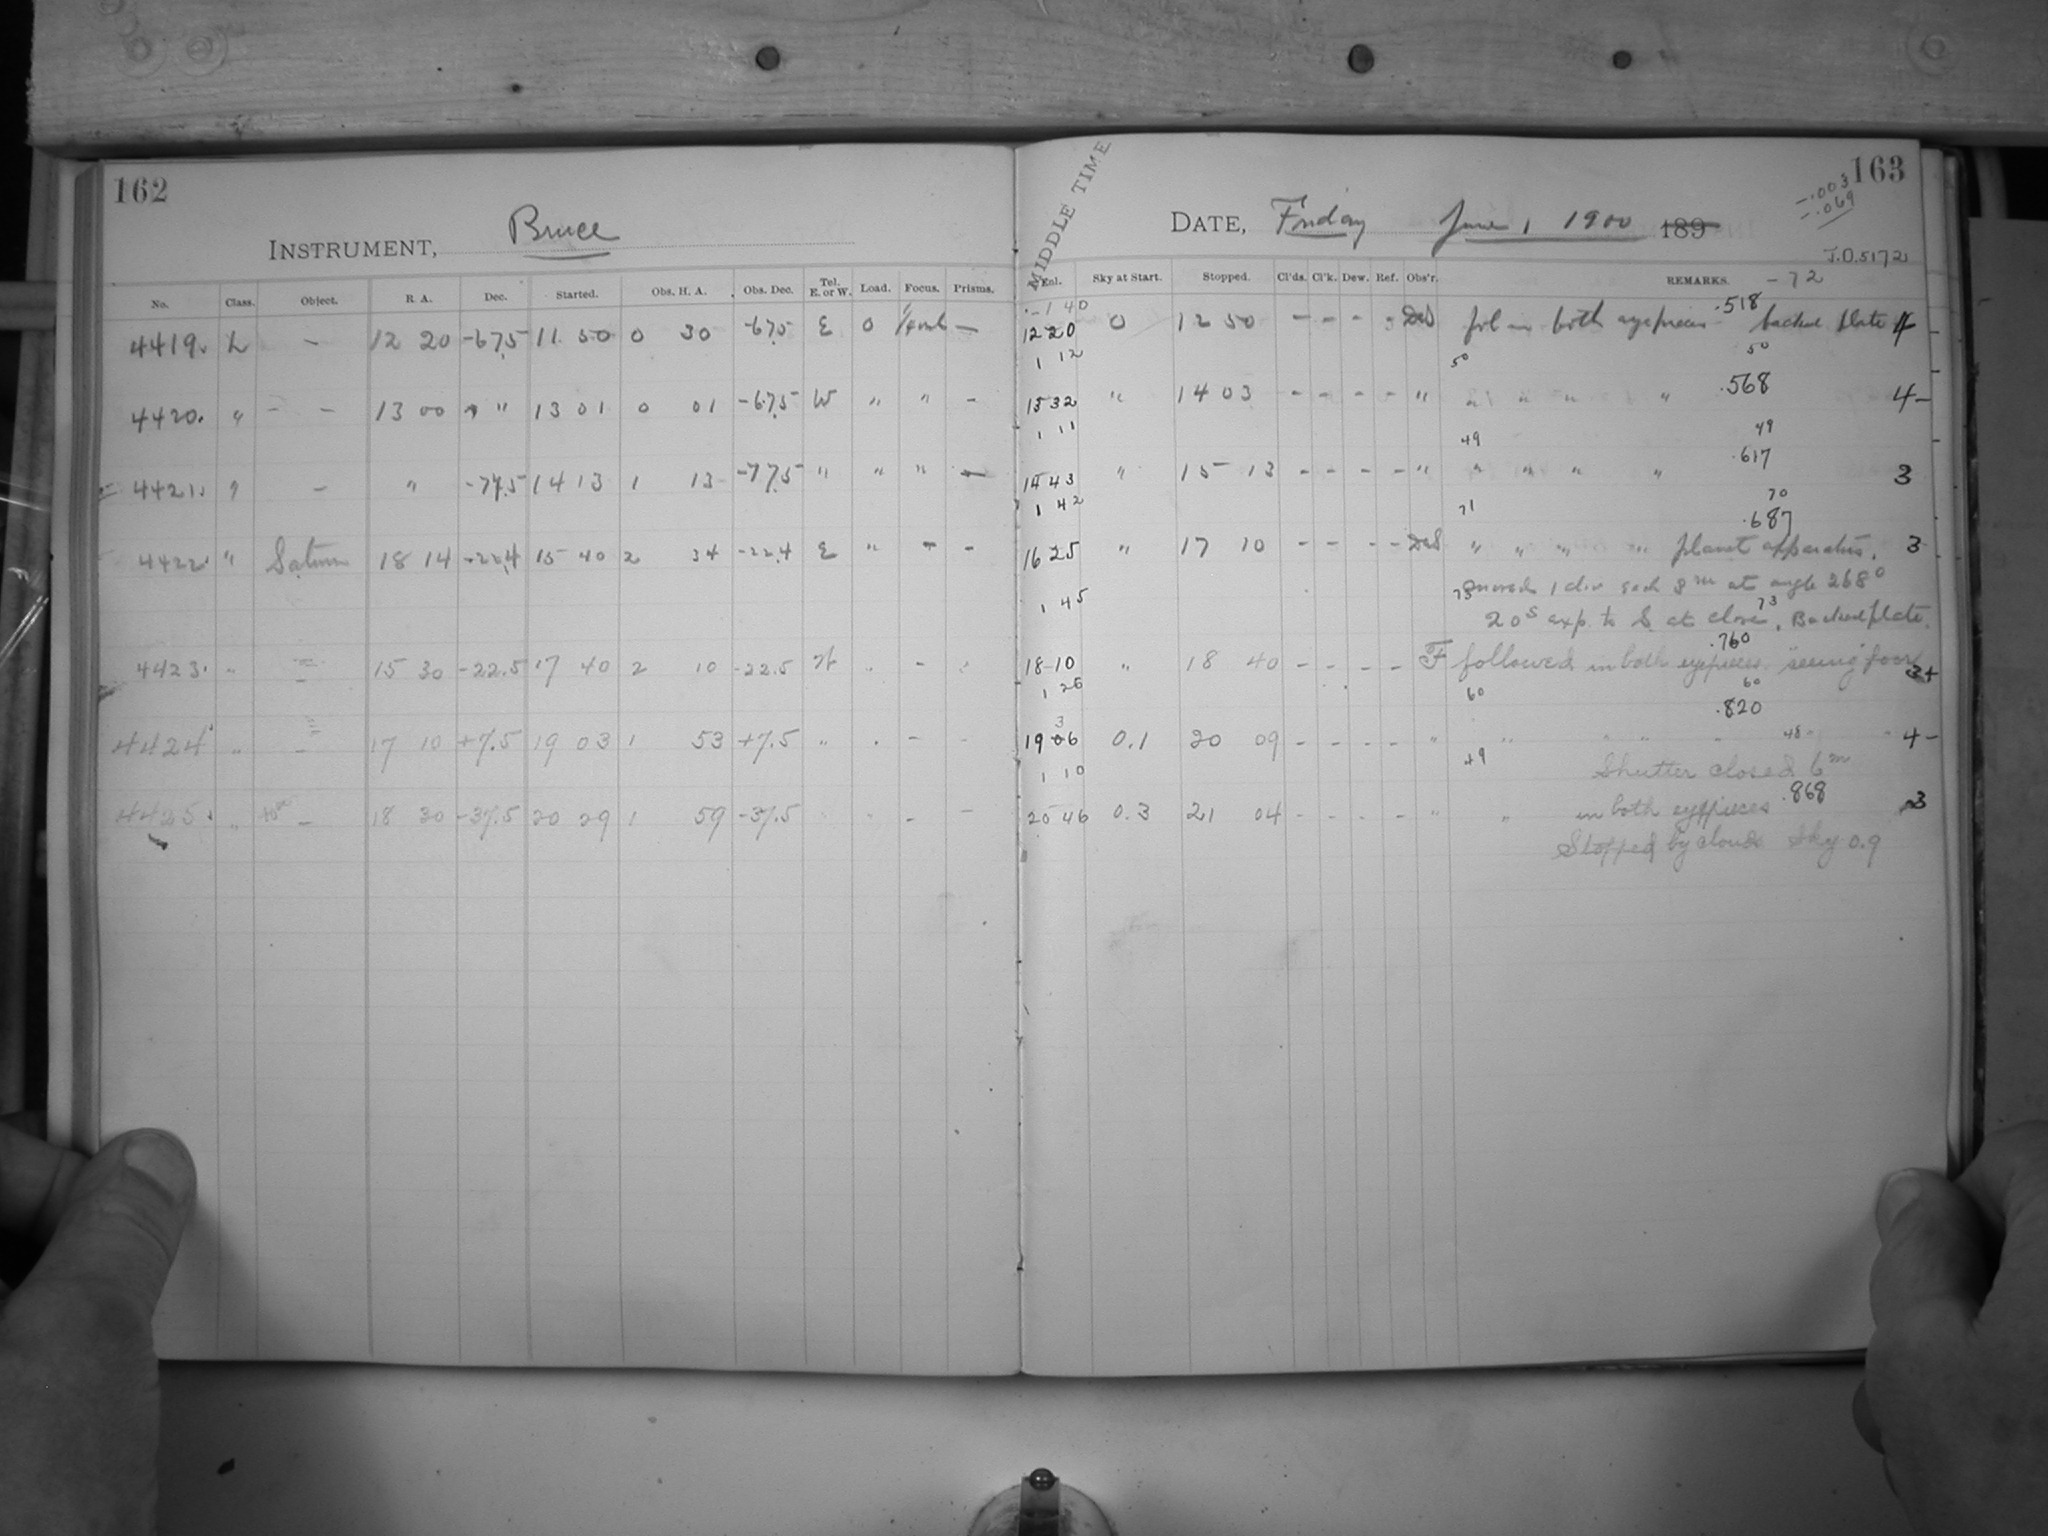 162
INSTRUMENT, Bruce
No. Class. Object. R. A. Dec. Started. Obs. H. A. Obs. Dec. Tel. E. or W. Load. Focus. Prisms.
4419. L - 12 20 -67.5 11 50 0 30 -67.5 E 0 -
4420. " - - 13 00 " 13 01 0 01 -67.5 W " " -
4421. " - " -77.5 14 13 1 13 -77.5 " " " -
4422. " Saturn 18 14 -22.4 15 40 2 34 -22.4 E " - -
4423. " - 15 30 -22.5 17 40 2 10 -22.5 W " -
4424 " - 17 10 +7.5 19 03 1 53 +7.5 " . - -
4425. " - 18 30 -37.5 20 29 1 59 -37.5 - -
163
-.003
-.069
MIDDLE TIME
DATE, Friday June 1 1900 189
J.O.5172
Enl. Sky at Start. Stopped. Cl'ds. Cl'k. Dew. Ref. Obs'r. REMARKS. -72
1 40 .518
12 20 0 12 50 - - - - fol in both eyepieces backed plate 4
1 12 50 50
.568
13 32 " 14 03 - - - - " " " " " 4-
1 11 49 49
.617
14 43 " 15 13 - - - - " " " " " 3
1 42 71 70
.687
16 25 " 17 10 - - - - " " " " planet apparatus. 3
moved 1 div each 3m at angle 268°
1 45 73 73
20s exp. to S at close. Backed plate.
.760
18 10 " 18 40 - - - - F followed in both eyepieces "seeing" poor 3+
1 26 60 60
.820
3
19 06 0.1 20 09 - - - - " " " " " 4-
48
1 10 49 Shutter closed 6m
.868
20 46 0.3 21 04 - - - - " " in both eyepieces 3
Stopped by clouds Sky 0.9